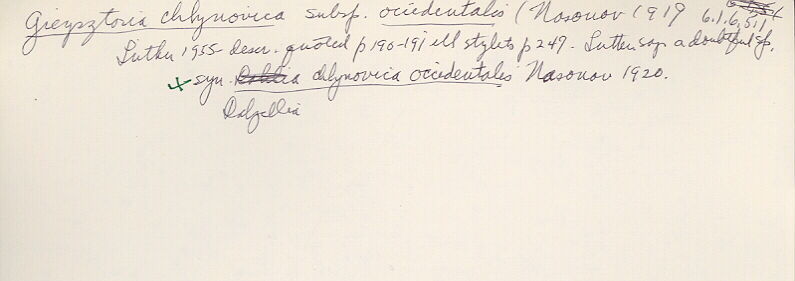 Gieysztoria chlynovica subsp. occidentalis (Nasonov 1919 6.1.6.511
Luther 1955 descr. quoted p190-191 ill stylets p 249. Luther say a doubtful sp.
syn. chlynovica occidentalis Nasonov 1920.
Dalyellia